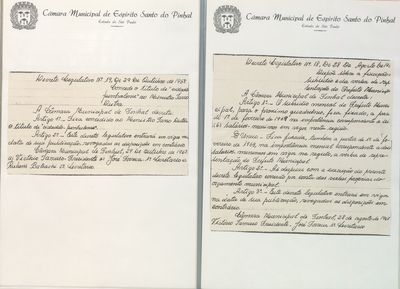 Câmara Municipal de Espírito Santo do Pinhal
Estado de São Paulo
Decreto Legislativo Nº 19, de 29 de Outubro de 1968
Concede o título de "cidadão
pinhalense" ao
A Câmara Municipal de Pinhal decreta:
Artigo 1º - Fica concedido ao
o título de cidadão pinhalense.
Artigo 2º - Este decreto legislativo entrará em vigor na
data de sua publicação, revogadas as disposições em contrário.
Câmara Municipal de Pinhal, 29 de Outubro de 1968
a) Presidente a) José 1º Secretário a)
2º Secretário
Câmara Municipal de Espírito Santo do Pinhal
Estado de São Paulo
Decreto Legislativo Nº 18, de 28 de Agosto de
Dispõe sôbre a fixação
subsídio e da verba de rep
sentação do Prefeito Municipal
A Câmara Municipal de Pinhal decreta:
Artigo 1º - O subsídio mensal do Prefeito Muni
cipal, para o próximo quadriênio, fica fixado, a par
de 1º de fevereiro de 1969 na importância correspondente a
salários mínimos em vigor nesta região.
Único - Fica fixada, também a partir de 1º de
fevereiro de 1969, na importância mensal correspondente a dois
salários mínimos em vigor na região, a verba de repre-
sentação do Prefeito Municipal.
Artigo 2º - As despesas com a execução do presente
decreto legislativo correrão por conta das verbas próprias do
orçamento municipal.
Artigo 3º - Este decreto legislativo entrará em vigor
na data de sua publicação, revogadas as disposições em
contrário.
Câmara Municipal de Pinhal, 28 de agosto de 1968
Presidente, José 1º Secretário